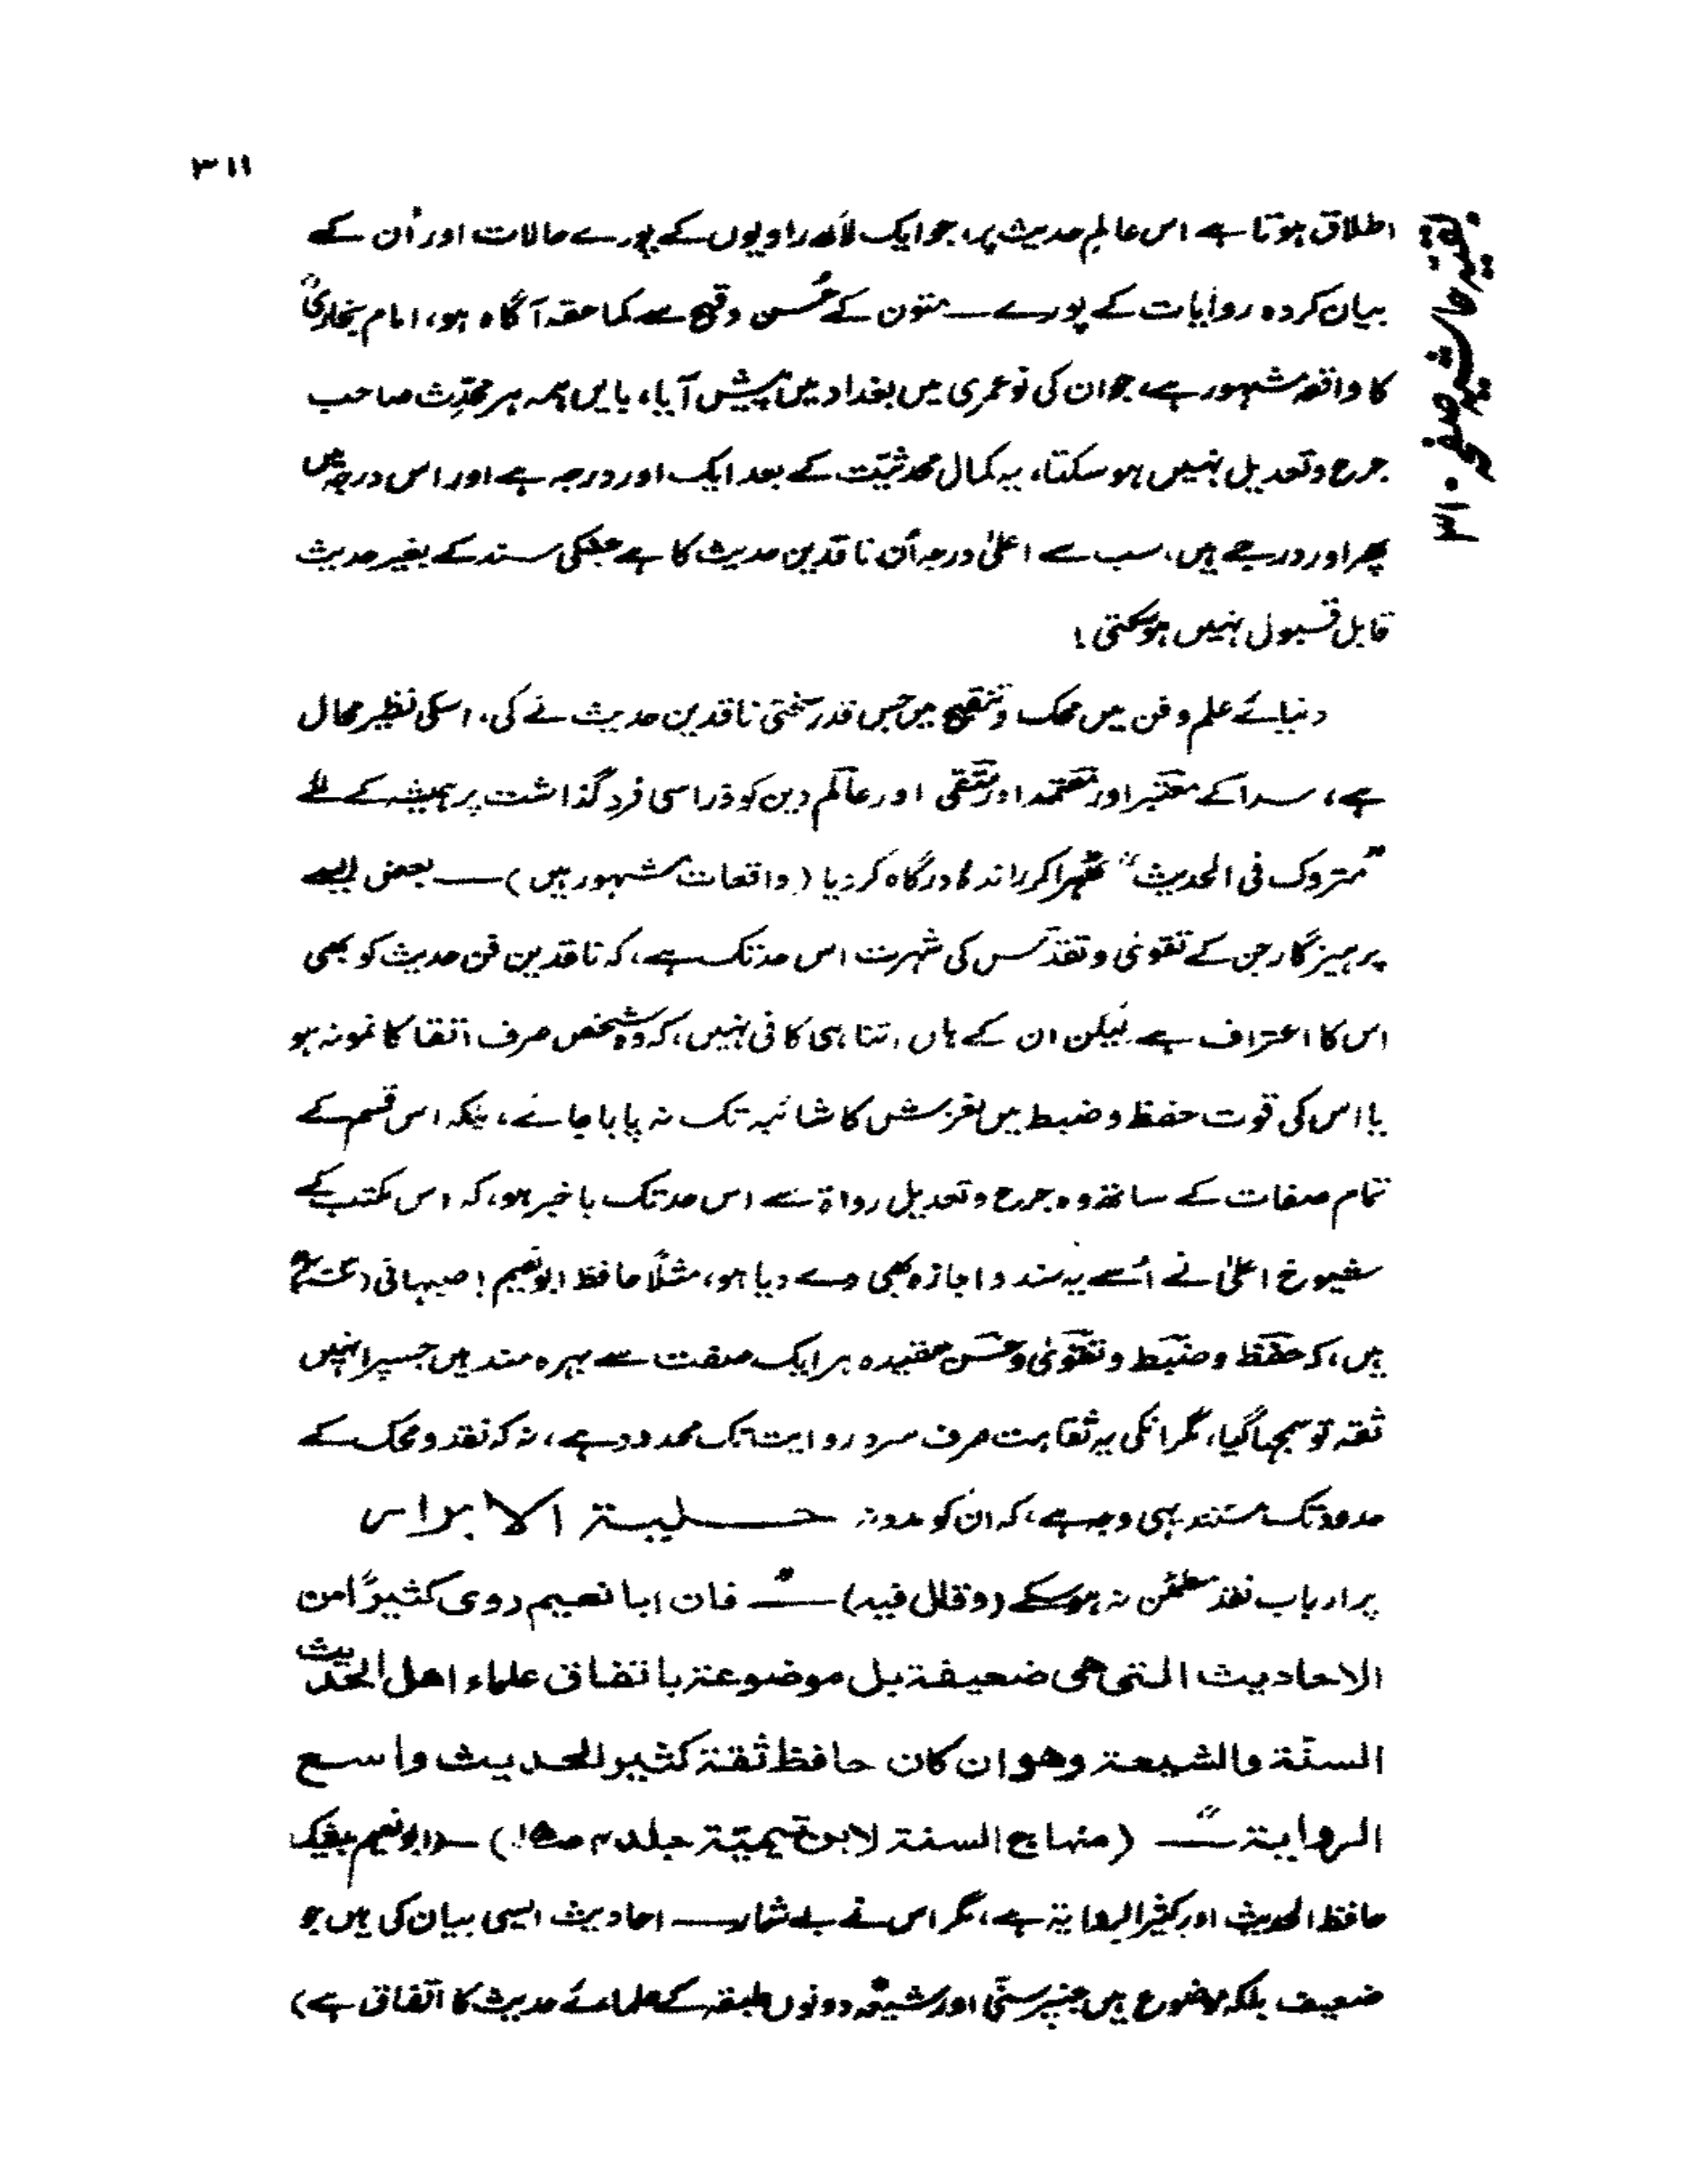 ۳۱۱
بقیہ حاشیہ صفحہ ۳۱۰
اطلاق ہوتا ہے اس عالمِ حدیث پر، جو ایک لاکھ راویوں کے پورے حالات اور اُن کے
بیان کردہ روایات کے پورے متون کے حُسن وقبح سے کما حقہ آگاہ ہو، امام بخاریؒ
کا واقعہ مشہور ہے، جو ان کی نوعمری میں بغداد میں پیش آیا، بایں ہمہ ہر محدّث صاحب
جرح وتعدیل نہیں ہو سکتا، یہ کمال محدثیّت کے بعد ایک اور درجہ ہے اور اس درجہ میں
پھر اور درجے ہیں، سب سے اعلیٰ درجہ اُن ناقدین حدیث کا ہے جنکی سند کے بغیر حدیث
قابل قبول نہیں ہو سکتی!
دنیائے علم و فن میں محک وتنقیح میں جس قدر سختی ناقدین حدیث نے کی، اسکی نظیر محال
ہے، سدا کے معتبر اور معتمد اور متقی اور عالم دین کو ذرا سی فردگذاشت پر ہمیشہ کے لئے
"متروک فی الحدیث" ٹھہرا کر راندۂ درگاہ کر دیا (واقعات مشہور ہیں) — بعض ایسے
پرہیزگار جن کے تقویٰ و تقدس کی شہرت اس حد تک ہے، کہ ناقدین فن حدیث کو بھی
اس کا اعتراف ہے لیکن ان کے ہاں اتنا ہی کافی نہیں، کہ وہ شخص صرف اتقا کا نمونہ ہو
یا اس کی قوت حفظ و ضبط میں لغزش کا شائبہ تک نہ پایا جائے، بلکہ اس قسم کے
تمام صفات کے ساتھ وہ جرح و تعدیل رواۃ سے اس حد تک باخبر ہو، کہ اس مکتب کے
شیوخ اعلیٰ نے اُسے یہ سند و اجازہ بھی دے دیا ہو، مثلًا حافظ ابونعیم اصبہانی
ہیں، کہ حفظ و ضبط و تقویٰ وحسن عقیدہ ہر ایک صفت سے بہرہ مند ہیں جسپر انہیں
ثقہ تو سمجہا گیا، مگر انکی یہ ثقاہت صرف سرد روایت تک محدود ہے، نہ کہ نقد و محک کے
حدود تک مستند یہی وجہ ہے، کہ ان کو مدونہ حلیۃ الابرار
پر ارباب نقد مطمئن نہ ہو سکے (وقال فیہ) — فان ابا نعیم روی کثیرًا من
الاحادیث التی ھی ضعیفۃ بل موضوعۃ باتفاق علماء اھل الحدیث
السنّۃ والشیعۃ وھو ان کان حافظ ثقۃ کثیر الحدیث واسع
الروایۃ — (منہاج السنۃ لابن تیمیّۃ جلد ۴ ص۱۵) — (ابونعیم بیشک
حافظ الحدیث اور کثیر الروایۃ ہے، مگر اس نے بے شمار احادیث ایسی بیان کی ہیں جو
ضعیف بلکہ موضوع ہیں جنپر سنّی اور شیعہ دونوں طبقہ کے علمائے حدیث کا اتفاق ہے)